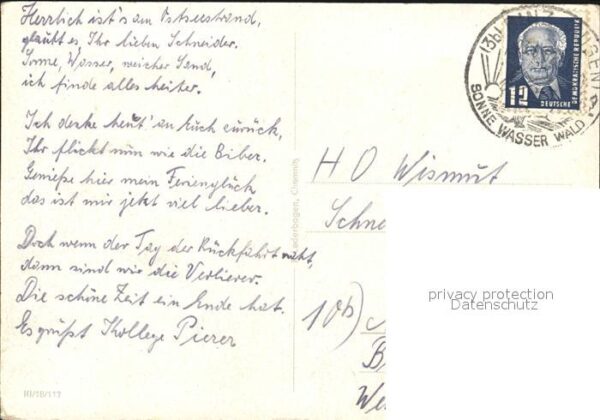 Herrlich ist's am Ostseestrand,
glaubt es, Ihr lieben Schneider.
Sonne, Wasser, weicher Sand,
ich finde alles heiter.
Ich denke heut' an Euch zurück,
Ihr flickt nun wie die Biber.
Genieße hier mein Ferienglück
das ist mir jetzt viel lieber.
Doch wenn der Tag der Rückfahrt naht,
dann sind wir die Verlierer.
Die schöne Zeit ein Ende hat.
Es grüßt Kollege Pierer
SONNE WASSER WALD
12
DEUTSCHE
DEMOKRATISCHE REPUBLIK
H O Wismut
Schne
10b)
We
privacy protection
Datenschutz